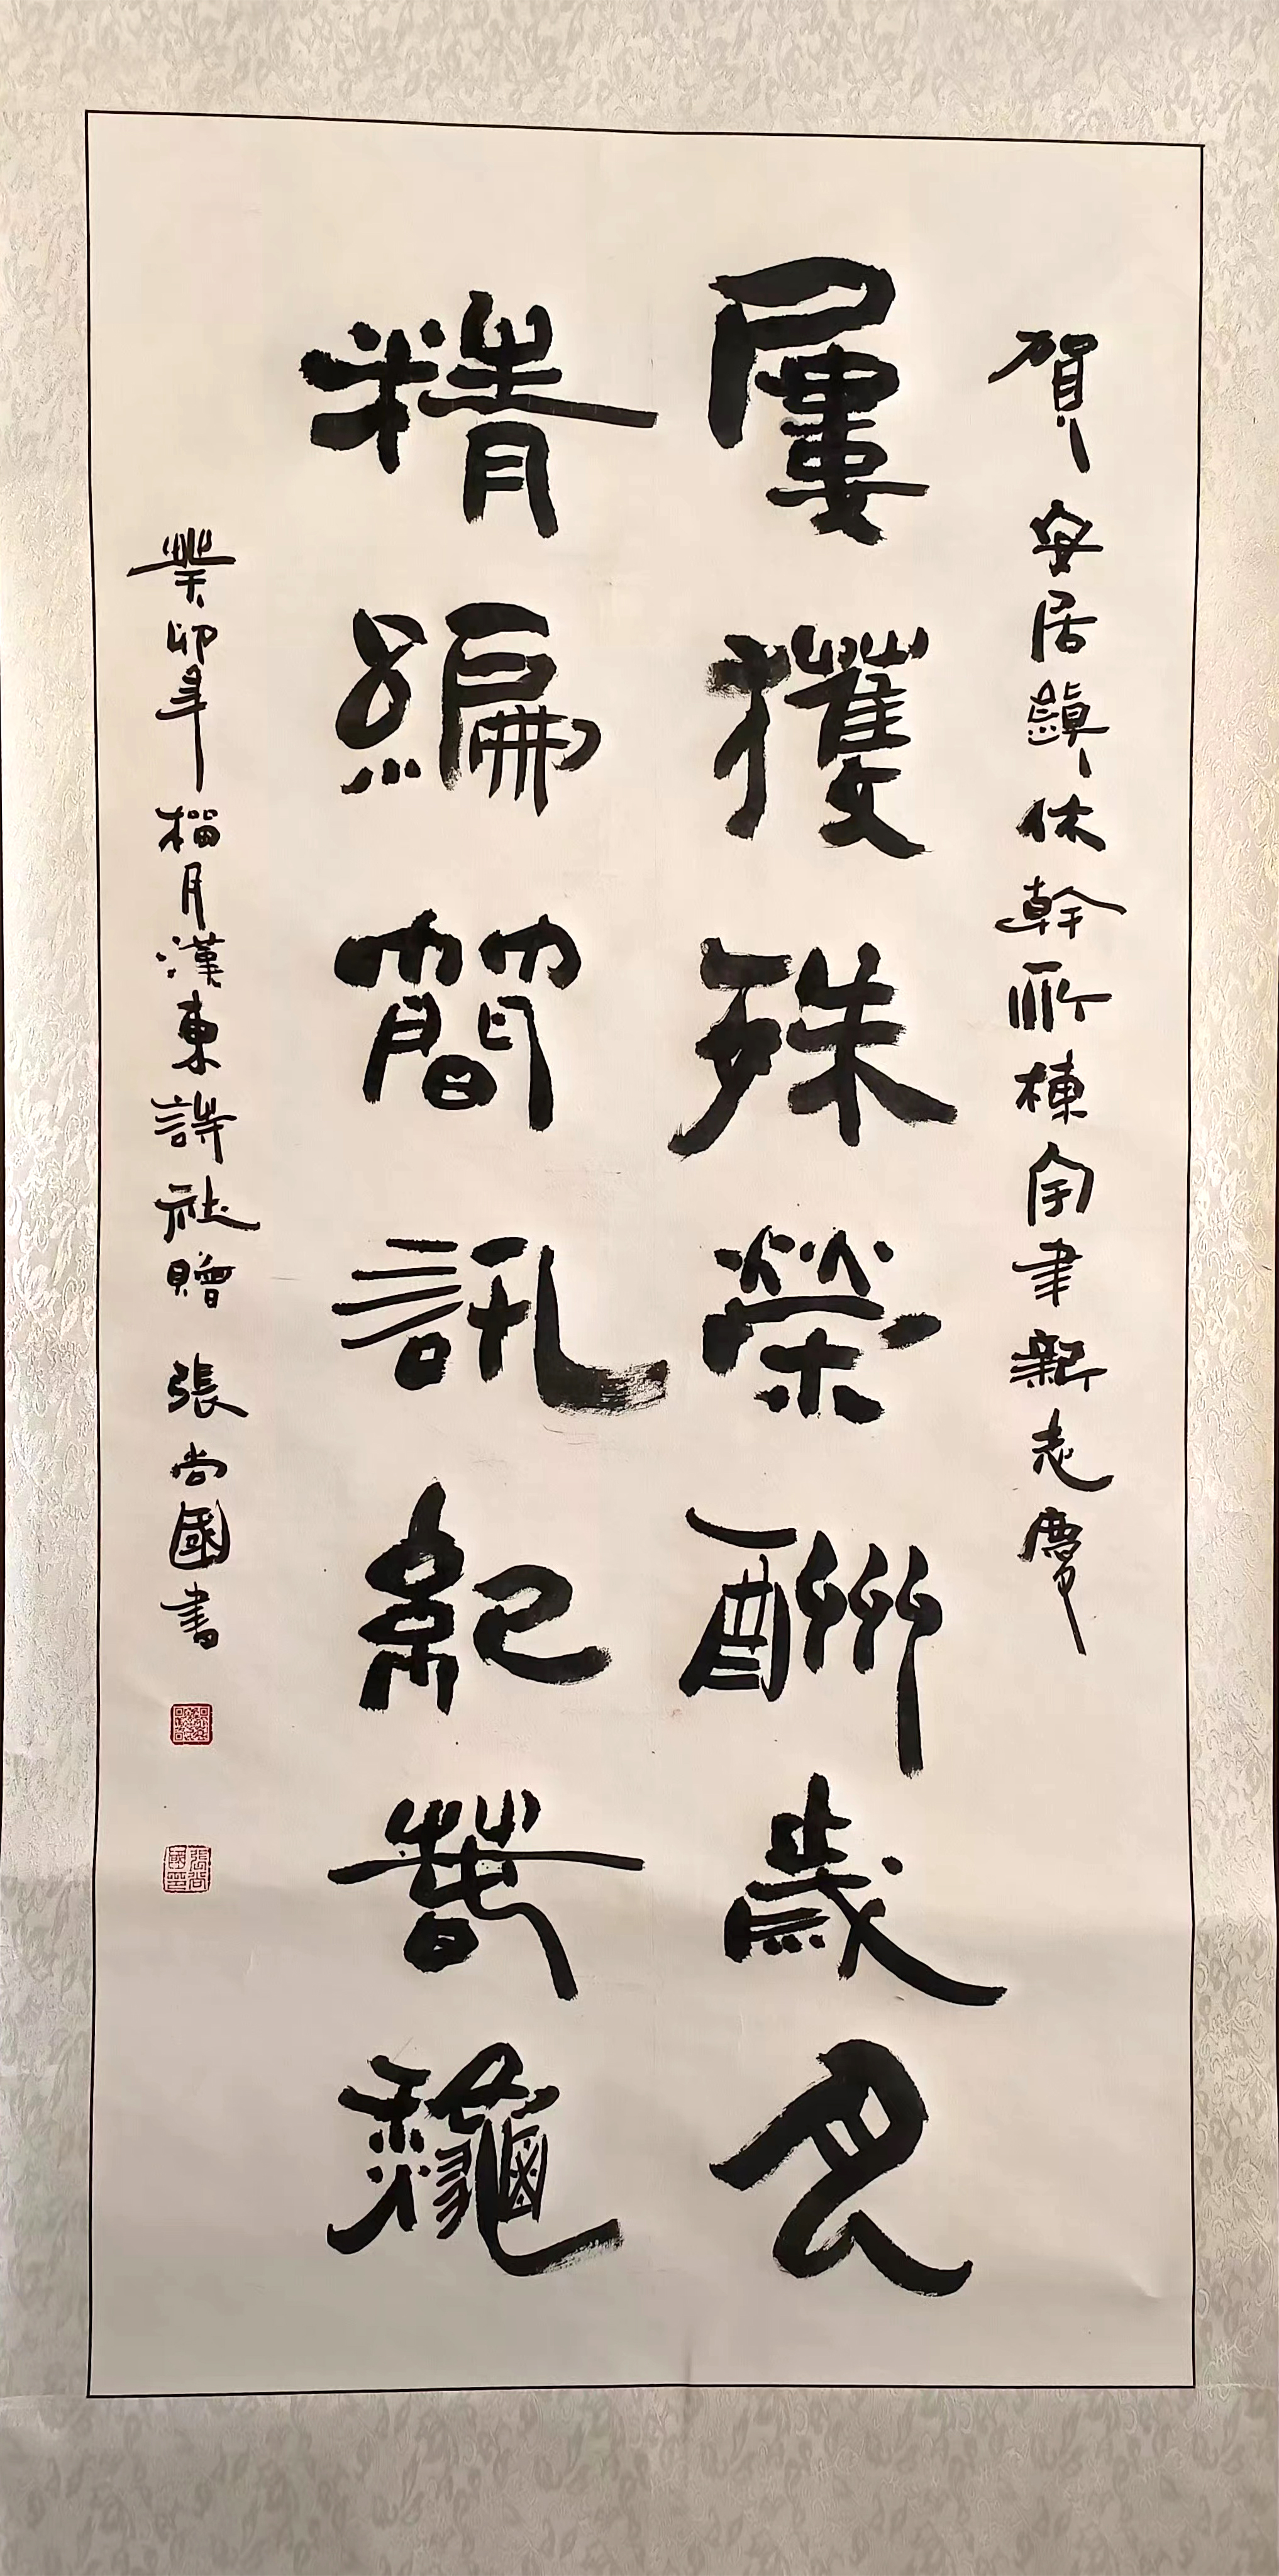 賀安居鎮休幹所棟宇聿新志慶
屢獲殊榮酬歲月
精編簡訊紀春龝
癸卯年榴月漢東詩社贈 張尚國書
張尚國印